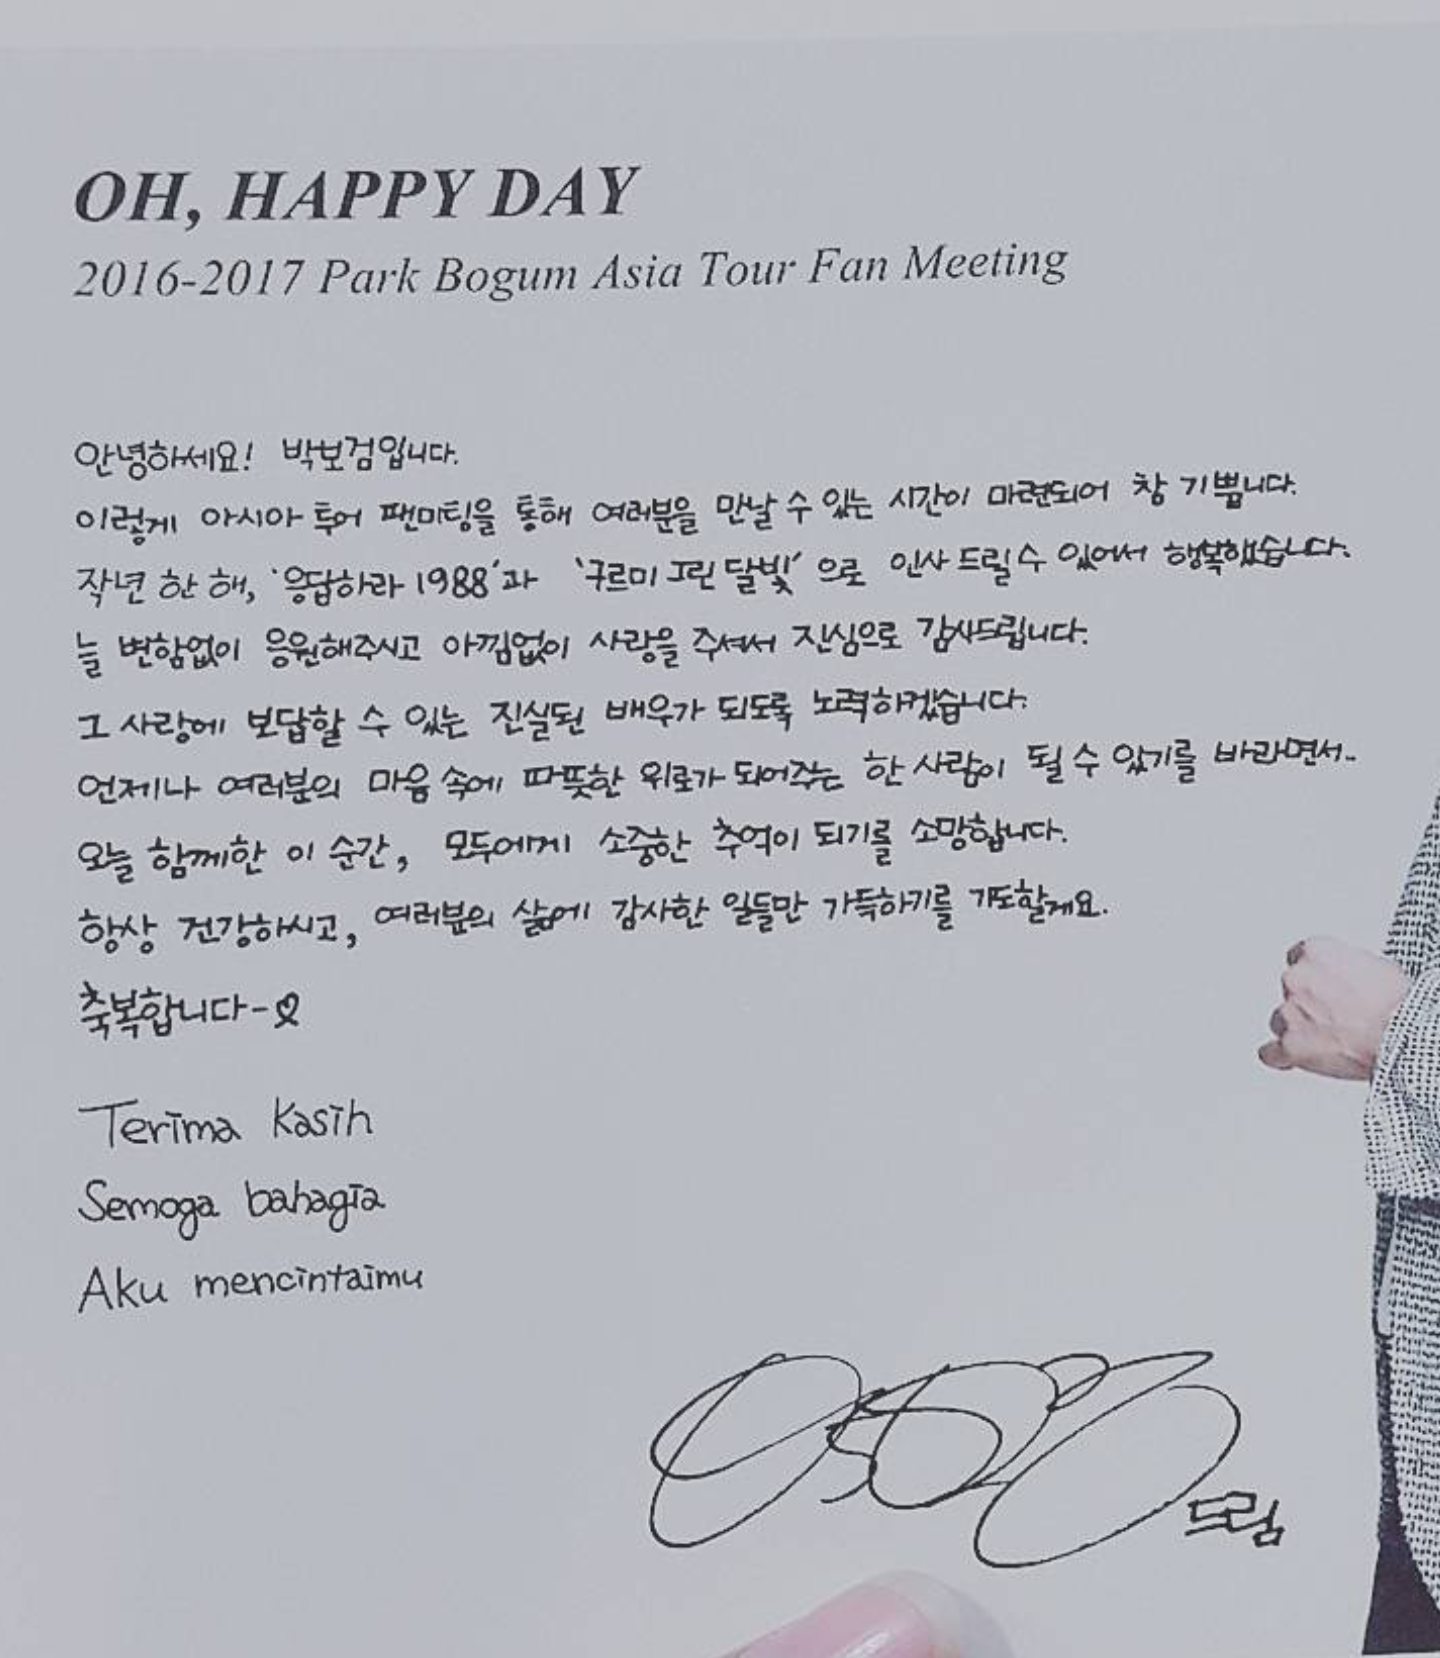 OH, HAPPY DAY
2016-2017 Park Bogum Asia Tour Fan Meeting
안녕하세요! 박보검입니다.
이렇게 아시아 투어 팬미팅을 통해 여러분을 만날 수 있는 시간이 마련되어 참 기쁩니다.
작년 한 해, '응답하라 1988'과 '구르미 그린 달빛' 으로 인사 드릴 수 있어서 행복했습니다.
늘 변함없이 응원해주시고 아낌없이 사랑을 주셔서 진심으로 감사드립니다.
그 사랑에 보답할 수 있는 진실된 배우가 되도록 노력하겠습니다.
언제나 여러분의 마음 속에 따뜻한 위로가 되어주는 한 사람이 될 수 있기를 바라면서..
오늘 함께한 이 순간, 모두에게 소중한 추억이 되기를 소망합니다.
항상 건강하시고, 여러분의 삶에 감사한 일들만 가득하기를 기도할게요.
축복합니다-
Terima Kasih
Semoga bahagia
Aku mencintaimu
드림